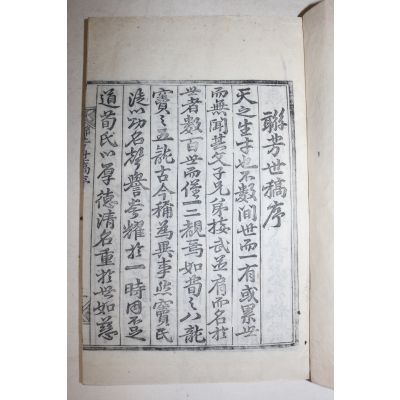 聯芳世稿序
天之生才也不數間世而一有或累世
而無聞其父子兄弟接武並有而名於
世者數百世而僅一二親焉如荀之八龍
竇之五龍古今稱為異事然竇氏
徒以功名聲譽夸耀於一時固不足
道荀氏以厚德清名重於世如慈